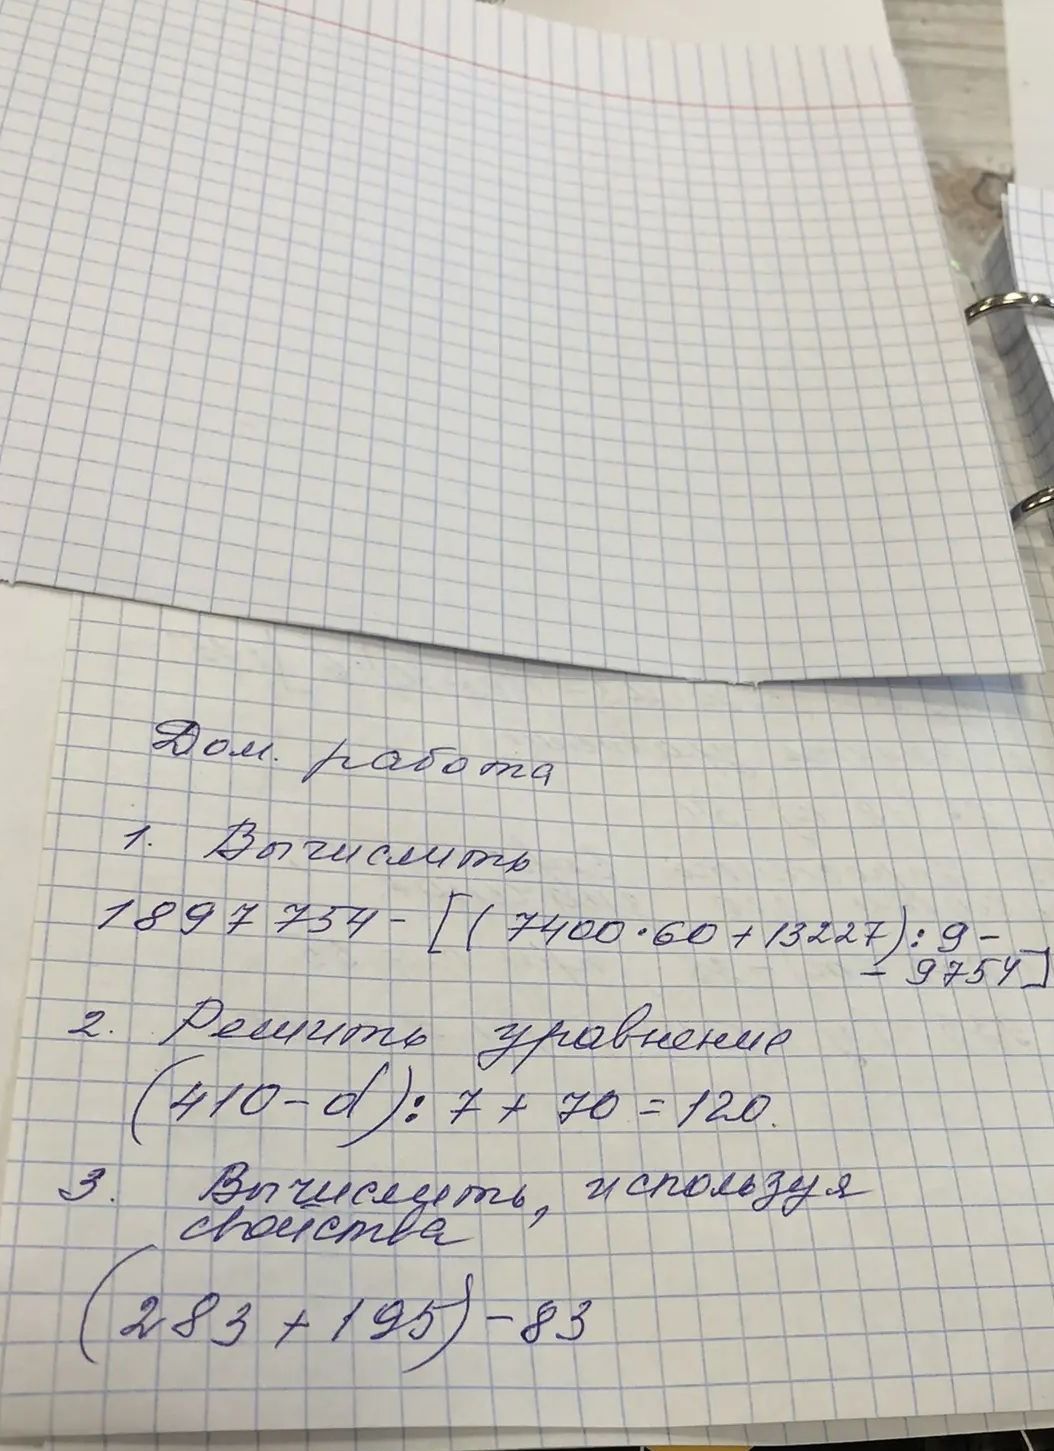 Дом. работа
1. Вычислить
1897754 - [(7400·60+13227):9 -
- 9754]
2. Решить уравнение
(410-d):7+70=120.
3. Вычислить, используя
свойства
(283+195)-83